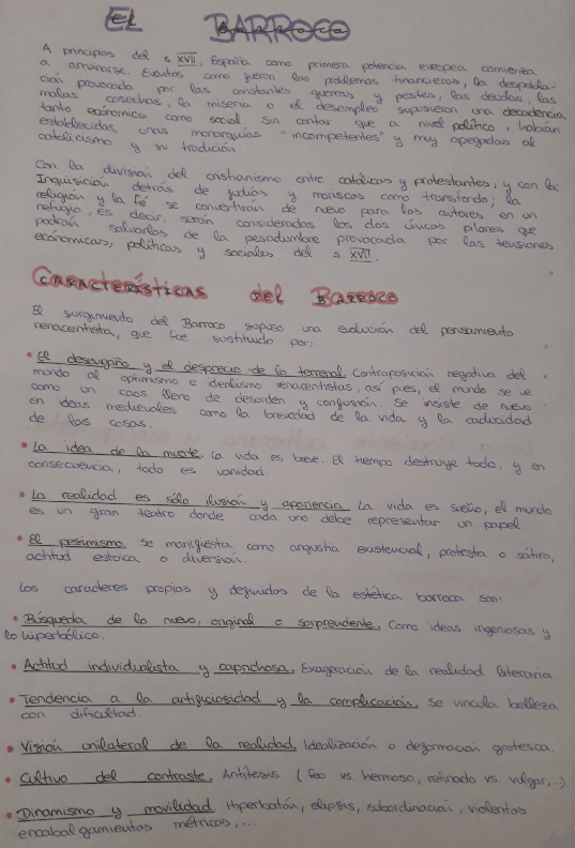 EL BARROCO
A principios del s XVII, España como primera potencia europea comienza
a arruinarse. Eventos como fueron los problemas financieros, la despobla-
ción provocada por las constantes guerras y pestes, las deudas, las
malas cosechas, la miseria o el desempleo supusieron una decadencia
tanto económica como social sin contar que a nivel político, habían
establecidas unas monarquías "incompetentes" y muy apegadas al
catolicismo y su tradición
Con la división del cristianismo entre católicos y protestantes, y con la
Inquisición detrás de judíos y moriscos como transfondo; la
religión y la fé se convertirán de nuevo para los autores en un
refugio, es decir, serán consideradas los dos únicos pilares que
podrán salvarlos de la pesadumbre provocada por las tensiones
económicas, políticas y sociales del s. XVII.
CARACTERÍSTICAS DEL BARROCO
El surgimiento del Barroco supuso una evolución del pensamiento
renacentista, que fue sustituido por:
• El desengaño y el desprecio de lo terrenal. Contraposición negativa del
mundo al optimismo e idealismo renacentistas, así pues, el mundo se ve
como un caos lleno de desorden y confusión. Se insiste de nuevo
en ideas medievales como la brevedad de la vida y la caducidad
de las cosas.
• La idea de la muerte. La vida es breve. El tiempo destruye todo, y en
consecuencia, todo es vanidad.
• La realidad es sólo ilusión y apariencia. La vida es sueño, el mundo
es un gran teatro donde cada uno debe representar un papel
• El pesimismo. Se manifiesta como angustia existencial, protesta o sátira,
actitud estoica o diversión.
Los caracteres propios y definidos de la estética barroca son:
• Búsqueda de lo nuevo, original o sorprendente. Como ideas ingeniosas y
lo hiperbólico.
• Actitud individualista y caprichosa. Exageración de la realidad literaria.
• Tendencia a la artificiosidad y la complicación. Se vincula belleza
con dificultad.
• Visión unilateral de la realidad. Idealización o deformación grotesca.
• Cultivo del contraste. Antítesis (feo vs. hermoso, refinado vs. vulgar,..)
• Dinamismo y movilidad. Hiperbatón, elipsis, subordinación, violentos
encabalgamientos métricos,...